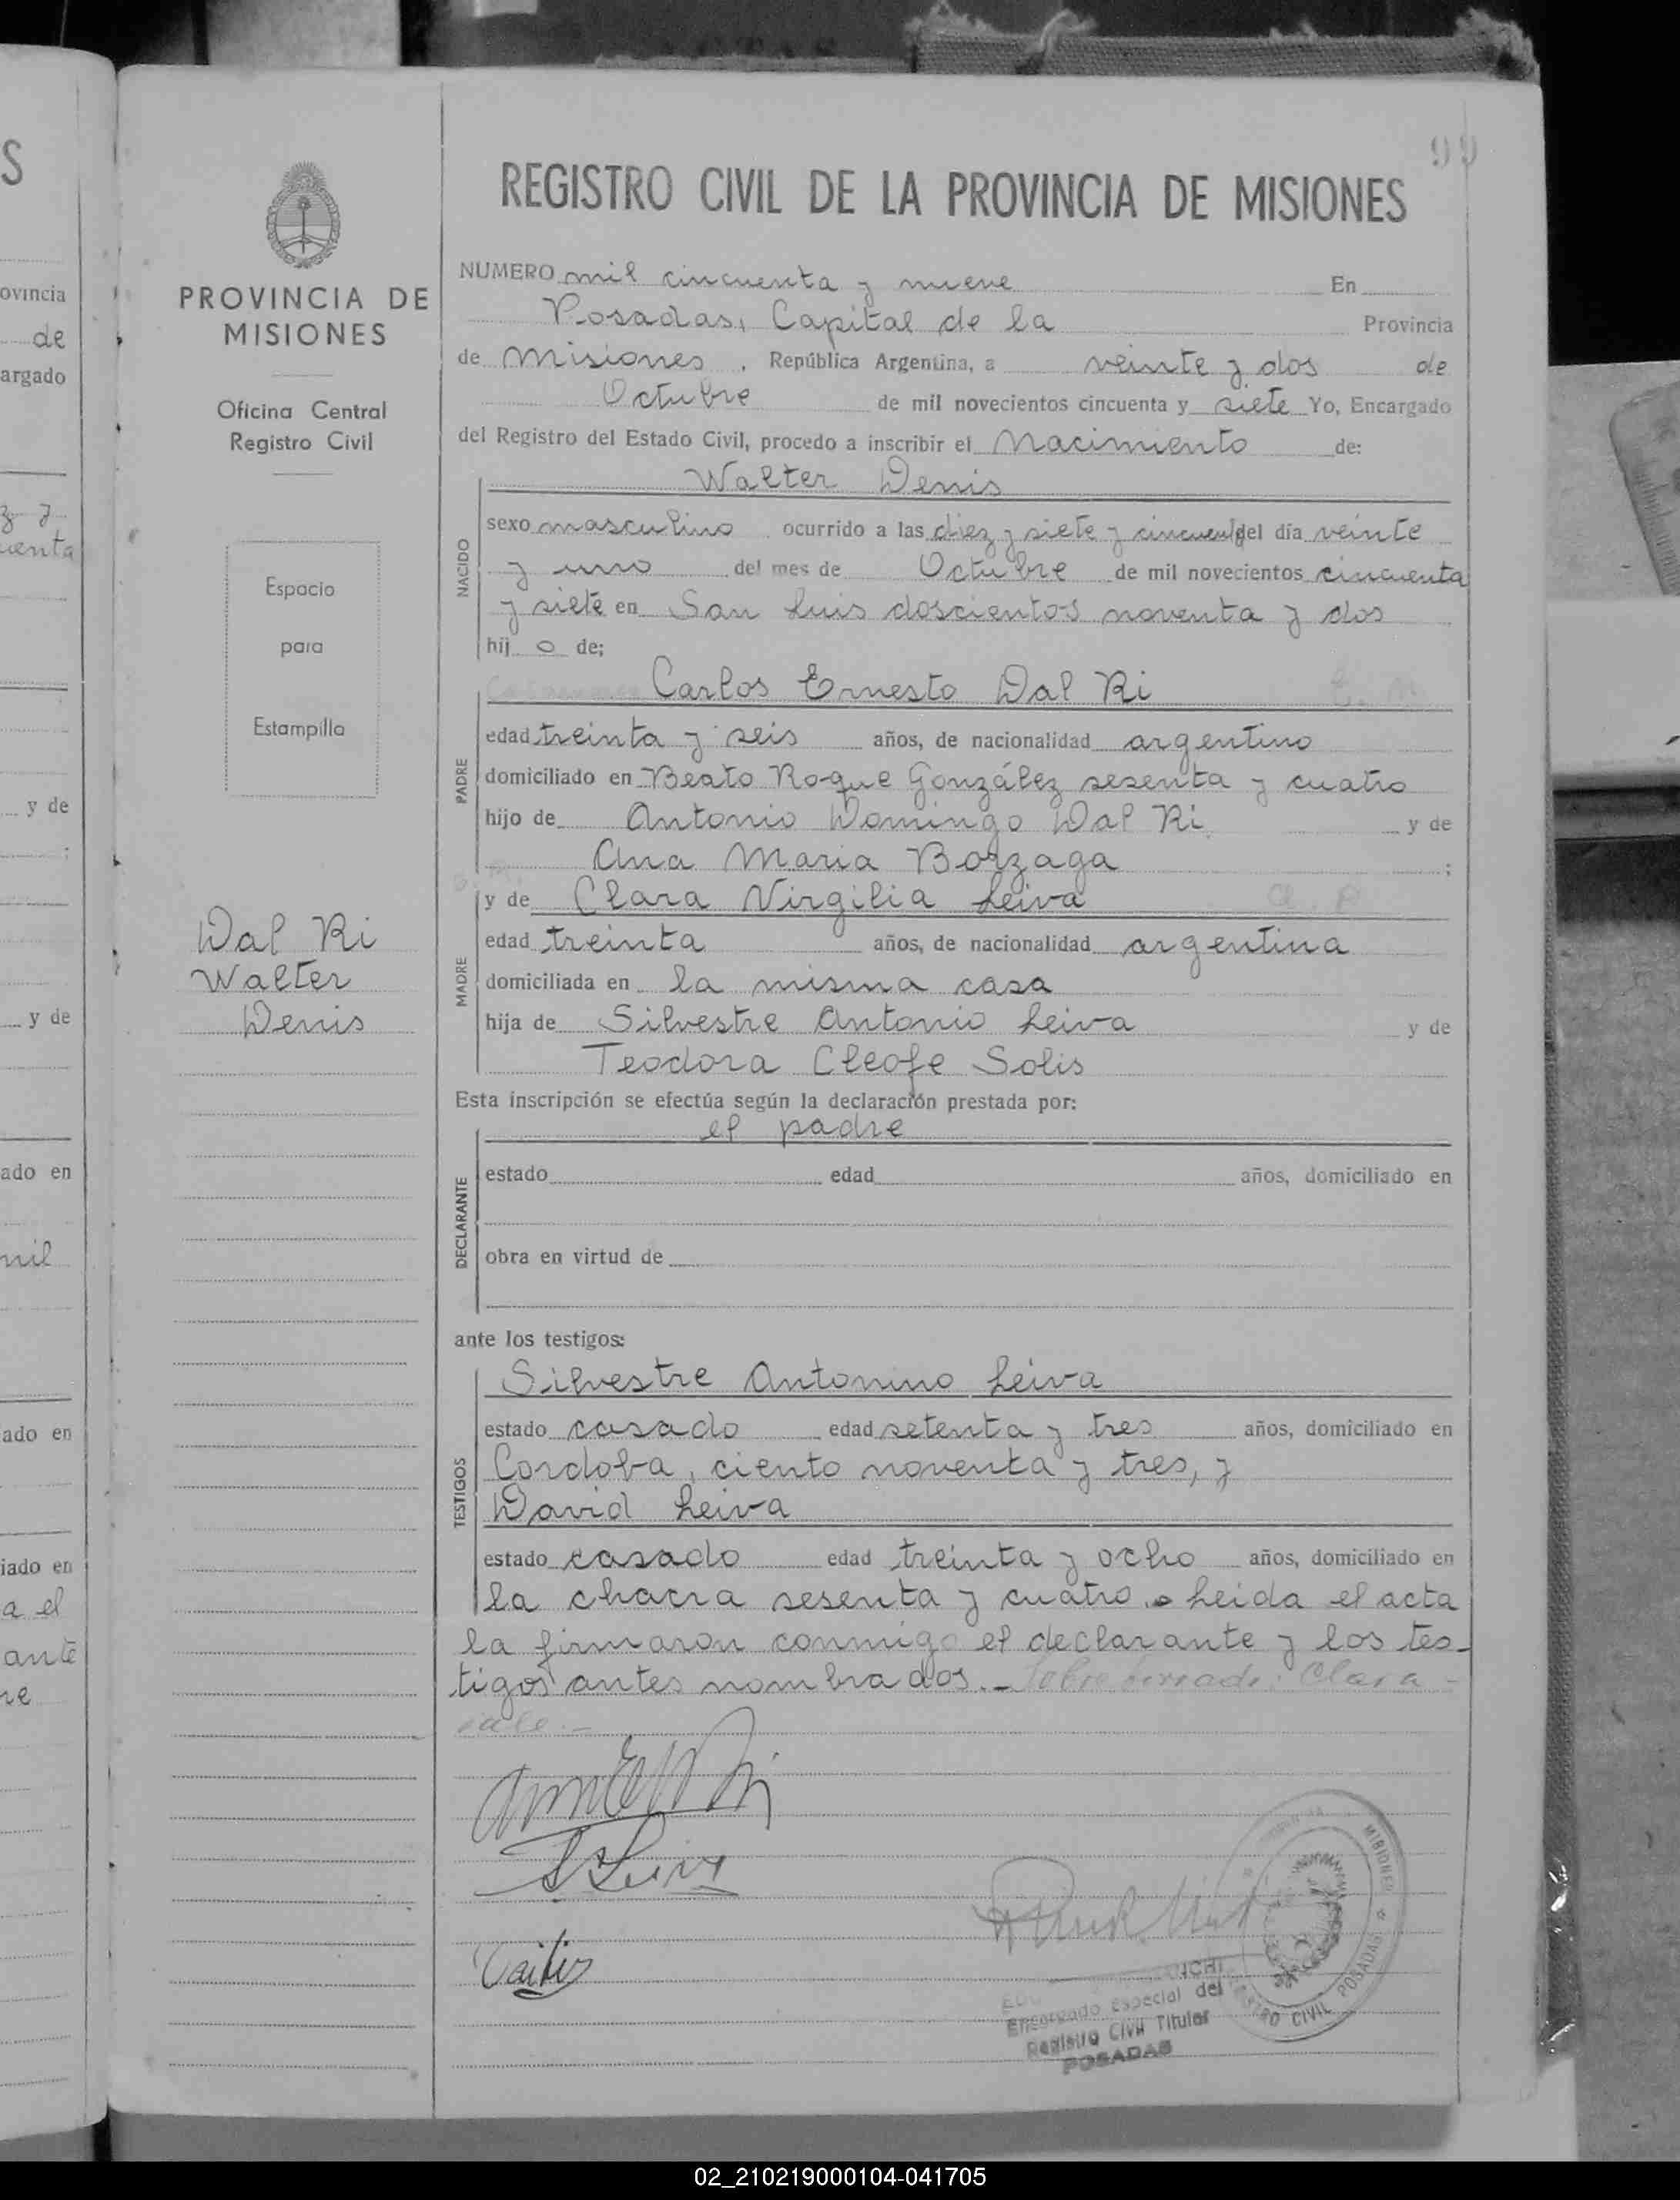 99
REGISTRO CIVIL DE LA PROVINCIA DE MISIONES
PROVINCIA DE
MISIONES
Oficina Central
Registro Civil
Espacio
para
Estampilla
Dal Ri
Walter
Denis
NUMERO mil cincuenta y nueve En
Posadas, Capital de la Provincia
de Misiones, República Argentina, a veinte y dos de
Octubre de mil novecientos cincuenta y siete Yo, Encargado
del Registro del Estado Civil, procedo a inscribir el Nacimiento de:
Walter Denis
NACIDO
sexo masculino ocurrido a las diez y siete y del día veinte
y uno del mes de Octubre de mil novecientos cincuenta
y siete en San Luis doscientos noventa y dos
hij o de;
Carlos Ernesto Dal Ri
PADRE
edad treinta y seis años, de nacionalidad argentino
domiciliado en Beato Roque González sesenta y cuatro
hijo de Antonio Domingo Dal Ri y de
Ana Maria Borzaga ;
y de Clara Virgilia Leiva
MADRE
edad treinta años, de nacionalidad argentina
domiciliada en la misma casa
hija de Silvestre Antonio Leiva y de
Teodora Cleofe Solis
Esta inscripción se efectúa según la declaración prestada por:
el padre
DECLARANTE
estado edad años, domiciliado en
obra en virtud de
ante los testigos:
Silvestre Antonino Leiva
TESTIGOS
estado casado edad setenta y tres años, domiciliado en
Cordoba, ciento noventa y tres, y
David Leiva
estado casado edad treinta y ocho años, domiciliado en
la chacra sesenta y cuatro. Leida el acta
la firmaron conmigo el declarante y los tes-
tigos antes nombrados.- Sobre borrado: Clara -
vale.-
MISIONES
CIVIL POSADAS
Encargado Especial del
Registro Civil Titular
POSADAS
02_210219000104-041705